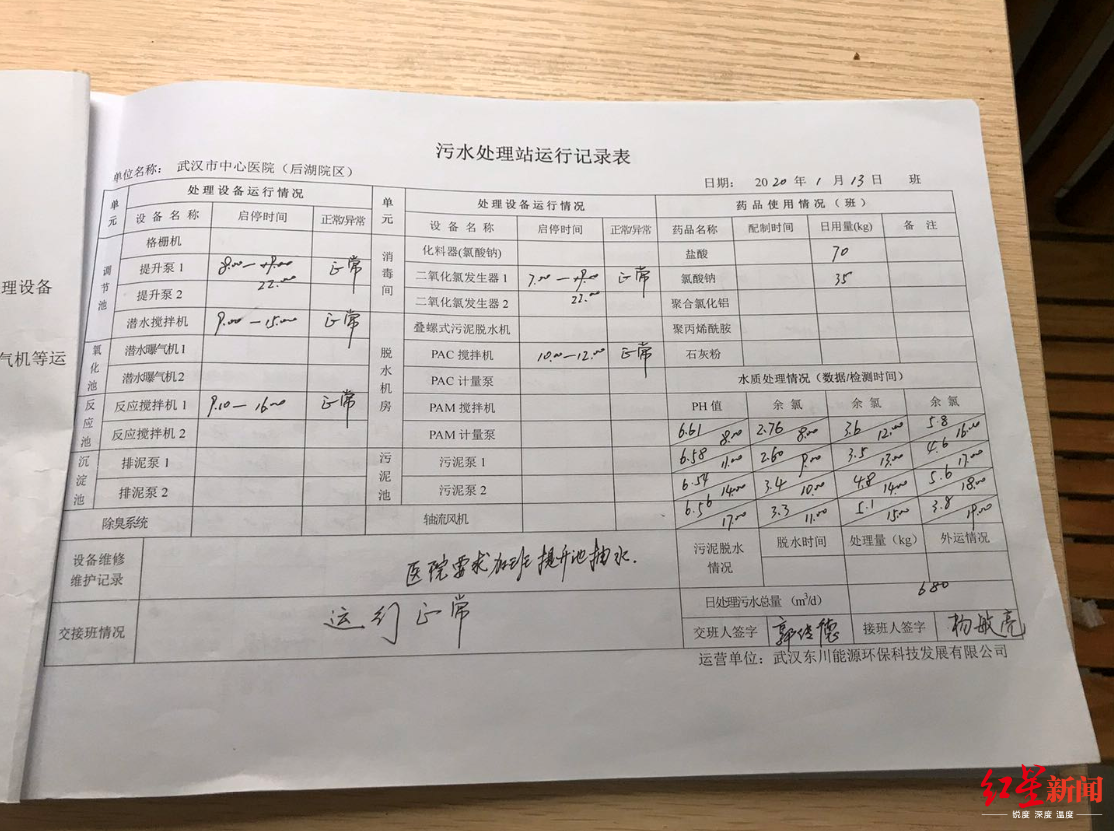 理设备
气机等运
污水处理站运行记录表
单位名称: 武汉市中心医院（后湖院区）
日期: 2020年1月13日 班
单元 处理设备运行情况 单元 处理设备运行情况 药品使用情况（班）
设备名称 启停时间 正常/异常 设备名称 启停时间 正常/异常 药品名称 配制时间 日用量(kg) 备注
调节池 格栅机 消毒间 化料器(氯酸钠) 盐酸 70
提升泵1 8:00—19:00 正常 二氧化氯发生器1 7:00—19:00 正常 氯酸钠 35
22:00 22:00
提升泵2 二氧化氯发生器2 聚合氯化铝
潜水搅拌机 9:00—15:00 正常 脱水机房 叠螺式污泥脱水机 聚丙烯酰胺
氧化池 潜水曝气机1 PAC搅拌机 10:00—12:00 正常 石灰粉
潜水曝气机2 PAC计量泵 水质处理情况（数据/检测时间）
反应池 反应搅拌机1 9:10—16:00 正常 PAM搅拌机 PH值 余氯 余氯 余氯
反应搅拌机2 PAM计量泵 6.61 8:00 2.76 8:00 3.6 12:00 5.8 16:00
沉淀池 排泥泵1 污泥池 污泥泵1 6.58 11:00 2.60 9:00 3.5 13:00 4.6 17:00
排泥泵2 污泥泵2 6.54 14:00 3.4 10:00 4.8 14:00 5.6 18:00
除臭系统 轴流风机 6.56 17:00 3.3 11:00 5.1 15:00 3.8 19:00
设备维修维护记录 医院要求加班提升池抽水. 污泥脱水情况 脱水时间 处理量（kg） 外运情况
日处理污水总量（m³/d） 680
交接班情况 运行正常 交班人签字 郭传德 接班人签字 杨敏亮
运营单位：武汉东川能源环保科技发展有限公司
红星新闻
锐度 深度 温度